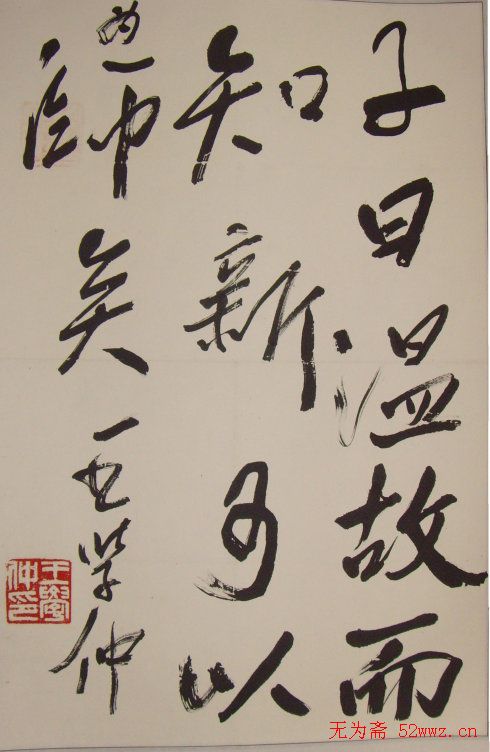 子曰温故而
知新可以
為師矣
王学仲
王學仲印
无为斋 52wwz.cn